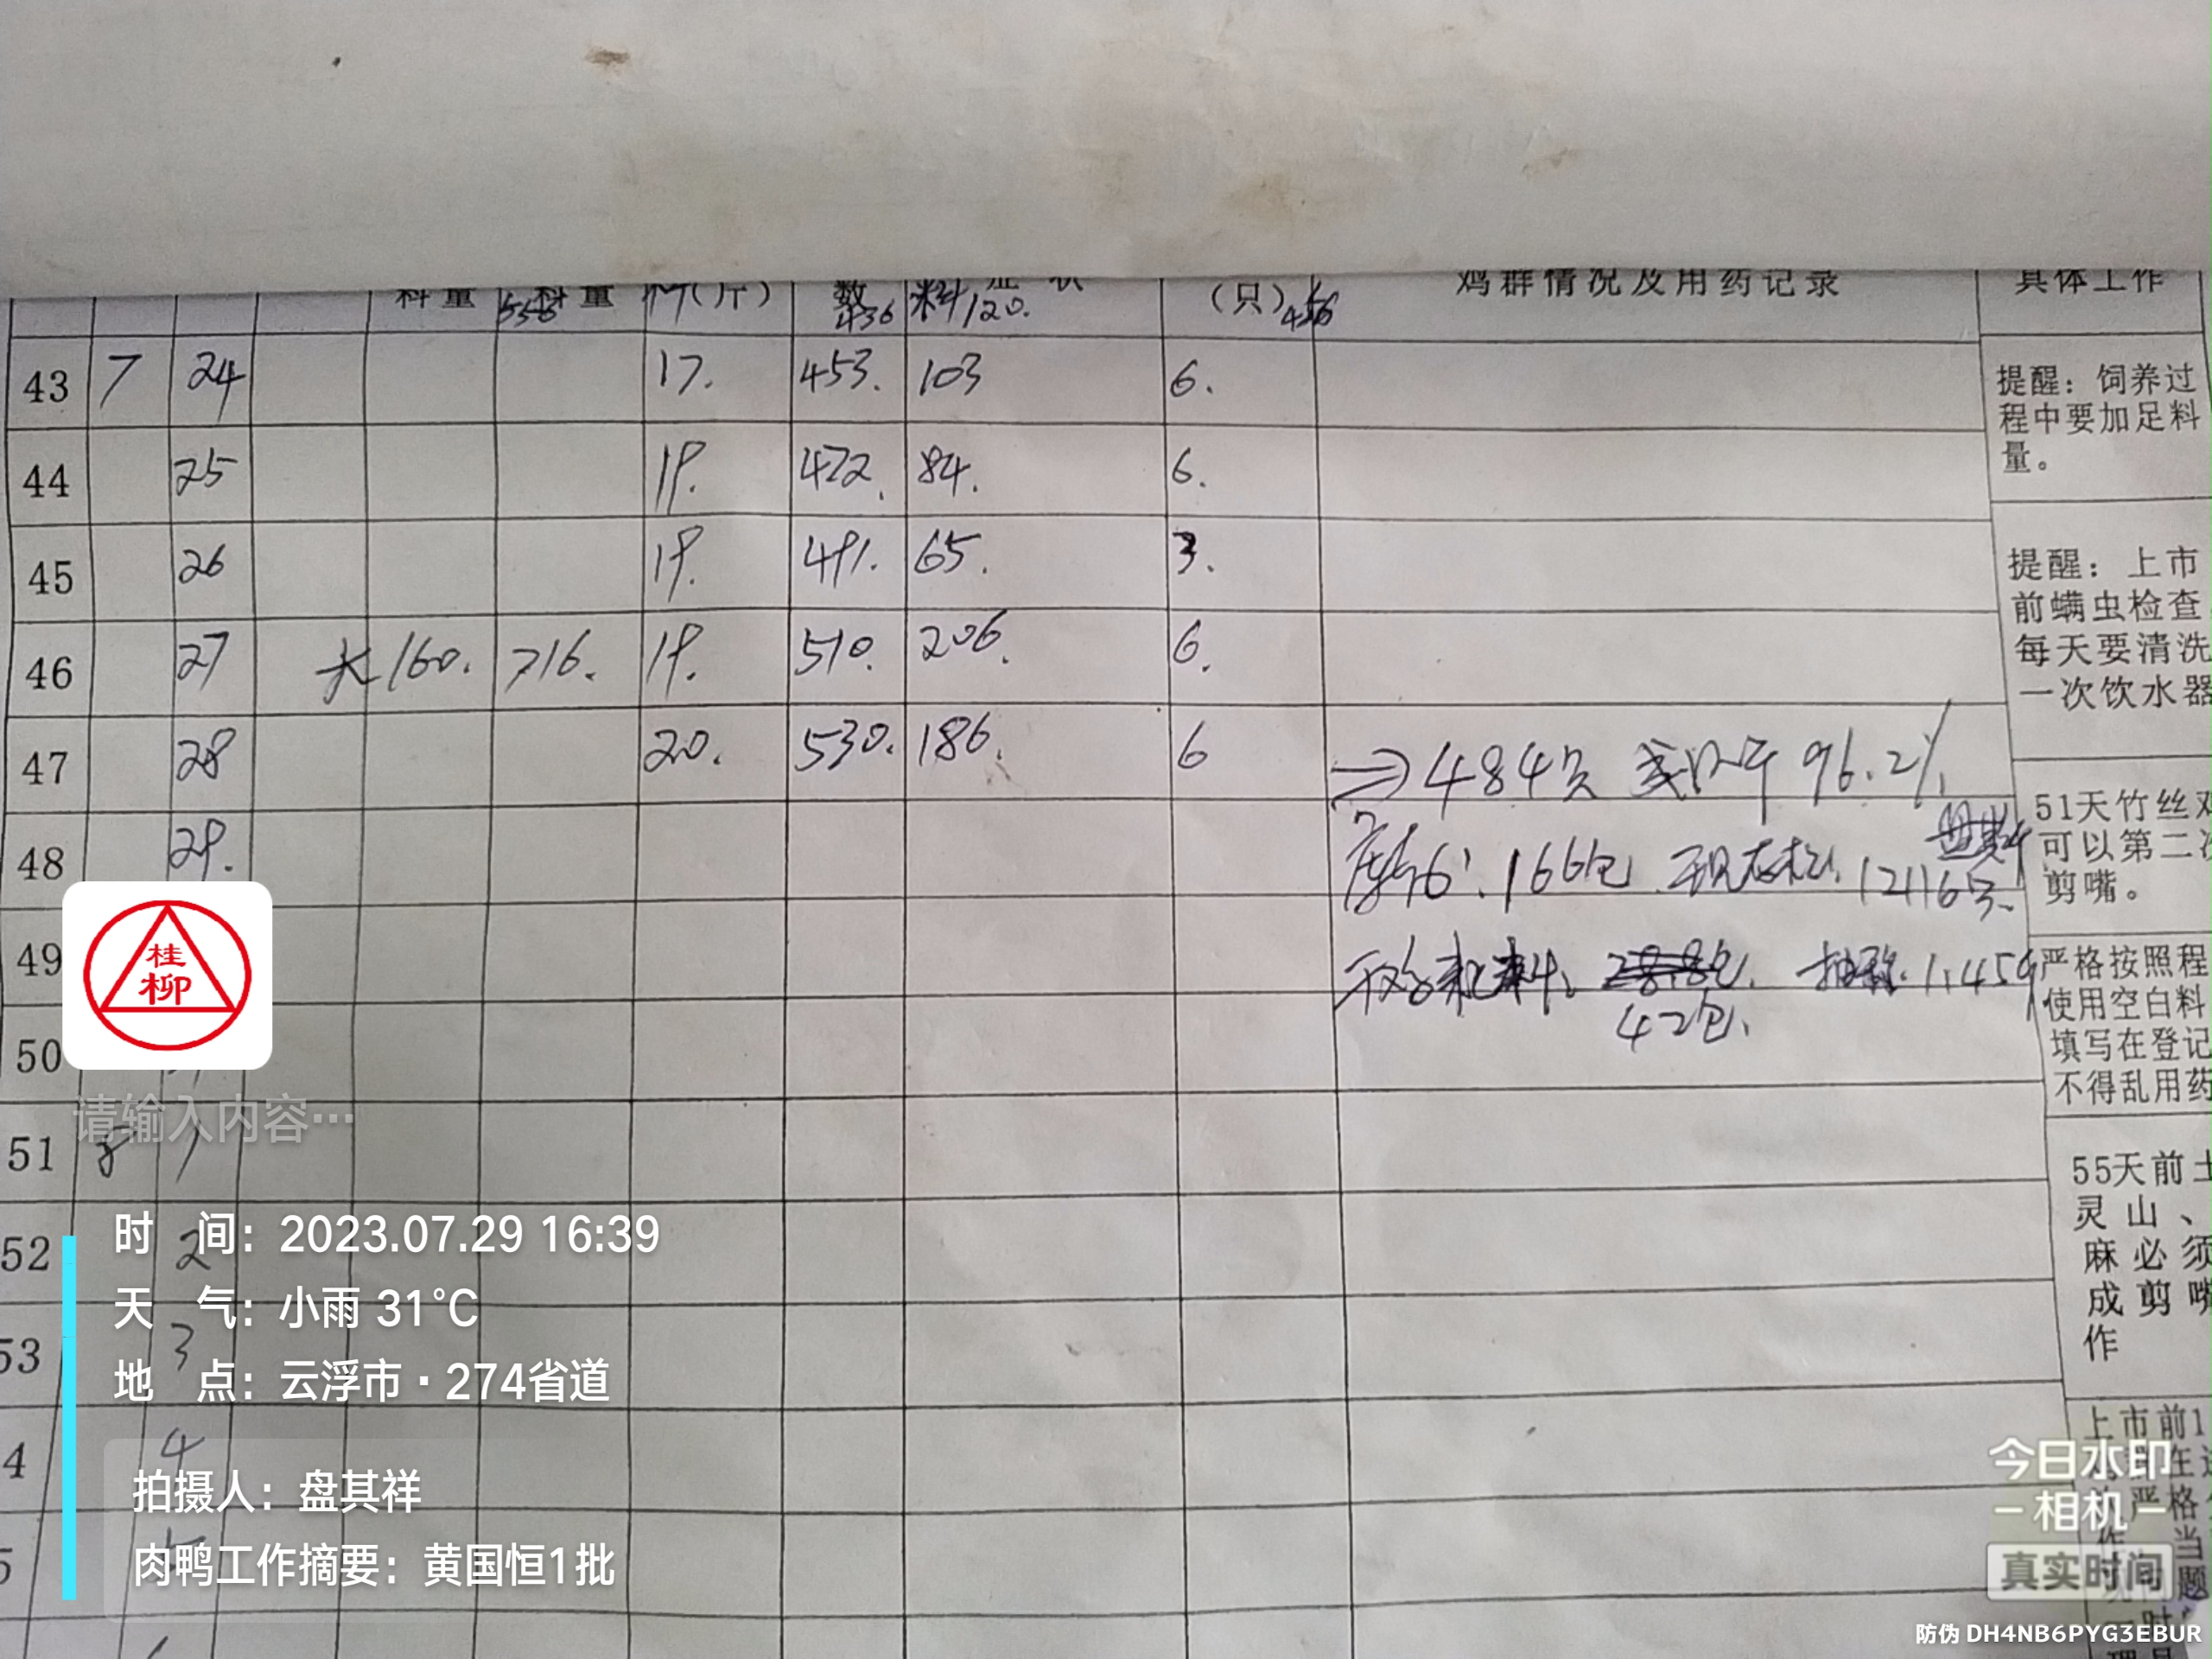 料量 556 料量 料(斤) 数 436 料 120. 症状 (只) 456 鸡群情况及用药记录 具体工作
43 7 24 17. 453. 103 6.
提醒：饲养过
程中要加足料
量。
44 25 19. 472. 84. 6.
45 26 19. 491. 65. 3.
提醒：上市
前螨虫检查
每天要清洗
一次饮水器
46 27 大 160. 716. 19. 510. 206. 6.
47 28 20. 530. 186. 6 484只 成活率 96.2%
51天竹丝鸡
可以第二次
剪嘴。
48 29. 166包 现存栏 12116只.
49 千鸡耗料: 28.8包. 抽称. 1.45
42包.
严格按照程
使用空白料
填写在登记
不得乱用药
50
请输入内容…
51 8 1
55天前土
灵山、
麻必须
成剪嘴
作
52 2
53 3
4 4
5 5
上市前1
桂
柳
时 间：2023.07.29 16:39
天 气：小雨 31°C
地 点：云浮市·274省道
拍摄人：盘其祥
肉鸭工作摘要：黄国恒1批
今日水印
－相机－
真实时间
防伪 DH4NB6PYG3EBUR